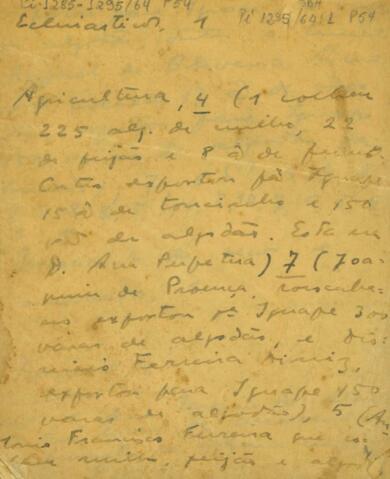 Pi 1285-1295/64 P54
Pi 1295/64.1 P54
Eclesiasticos, 1
Agricultura, 4 (1 colheu
225 alq. de milho, 22
de feijão e 8 @ de fumo.
Outro exportou pª Iguape
15 @ de toucinho e 150
de algodão. Esta era
D. Ana Perpetua) 7 (Joa-
quim de Proença,
exportou pª Iguape 300
varas de algodão, e Dio-
nisio Ferreira Diniz,
exportou para Iguape 450
varas de algodão), 5 (An-
tonio Francisco Ferreira que co-
lheu milho, feijão e